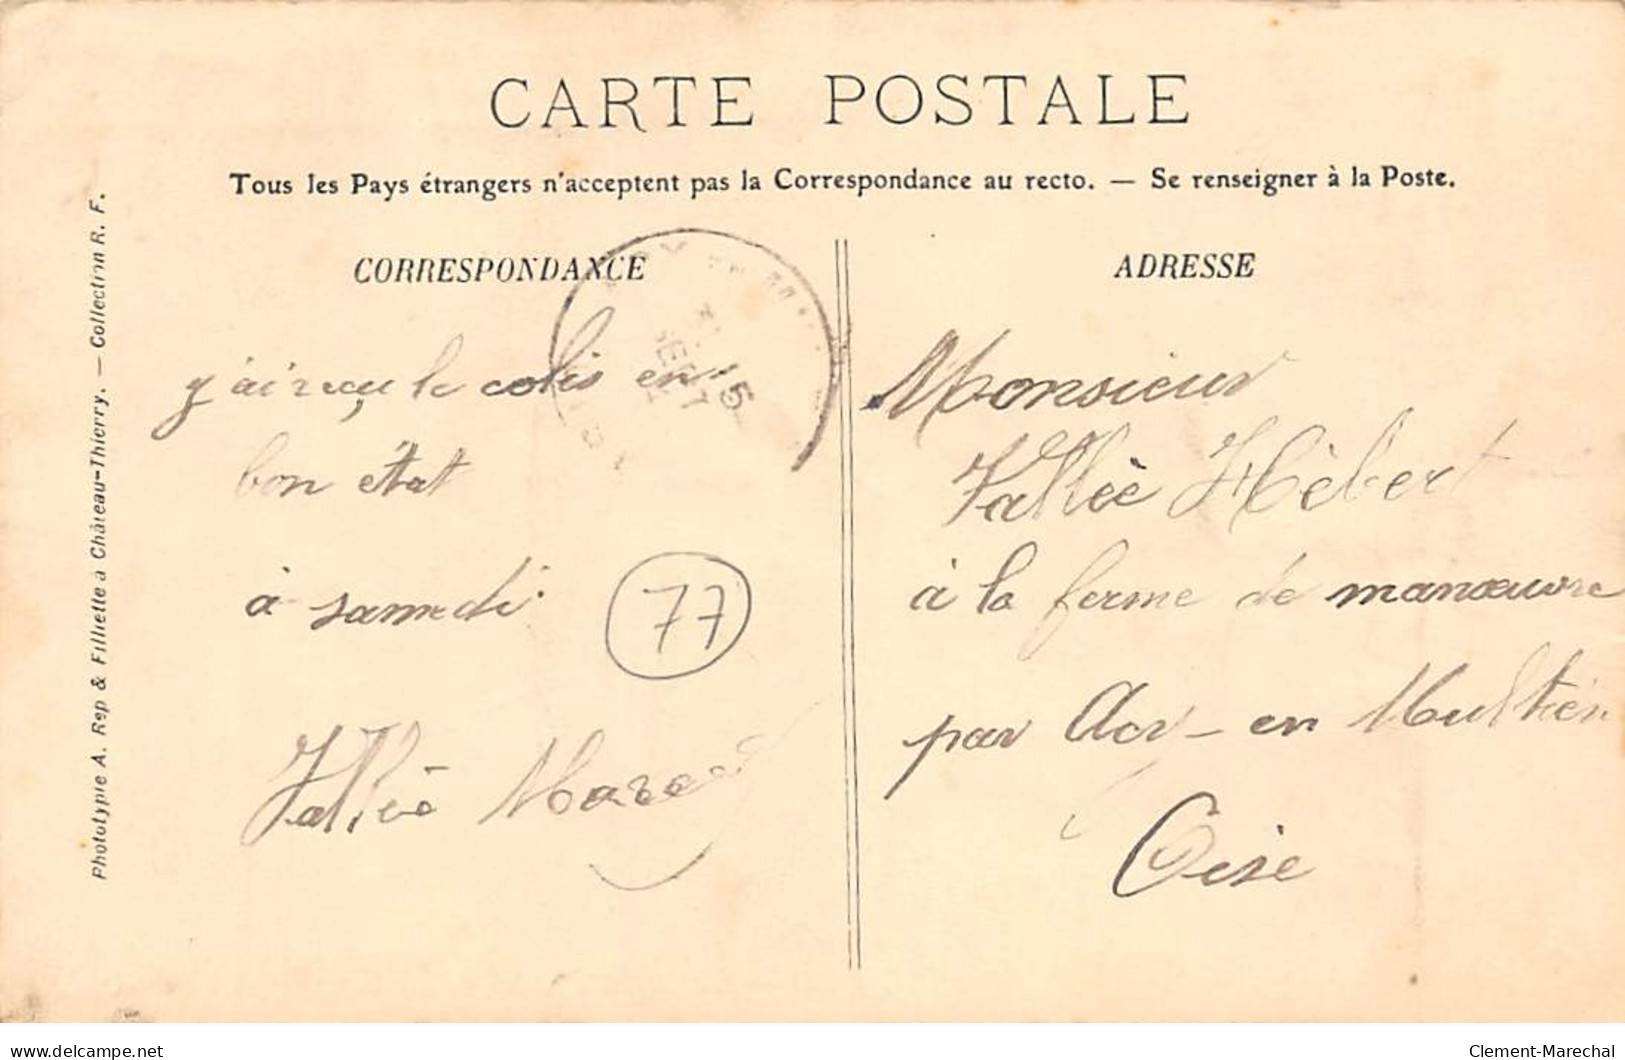 CARTE POSTALE
Tous les Pays étrangers n'acceptent pas la Correspondance au recto. — Se renseigner à la Poste.
Phototypie A. Rep & Filliette à Château-Thierry. — Collection R. F.
CORRESPONDANCE
j'ai reçu le colis en
bon état
à samedi
77
Vallée
ADRESSE
Monsieur
Vallèe Hèbert
à la ferme de manœuvre
par Acy-en Multien
Oise
delcampe.net
Clement-Marechal